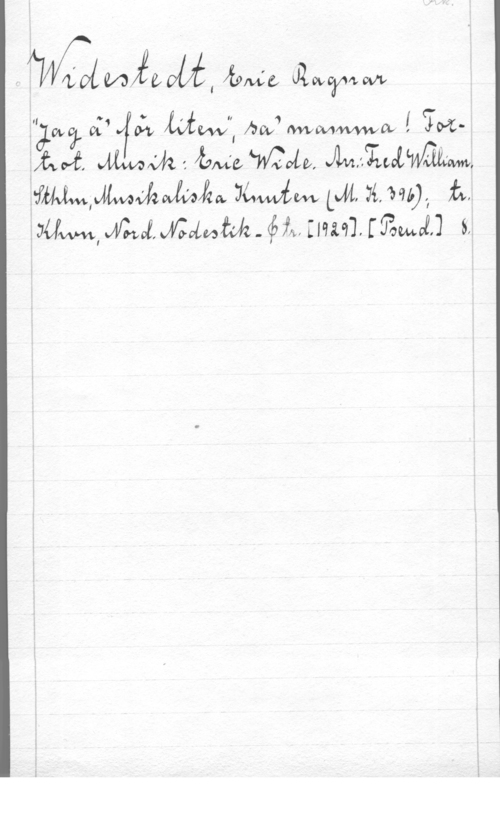 Widestedt, Eric Ragnar
"Jag ä' för liten", sa' mamma! Fox-
trot. Musik: Eric Wide. Arr.: Fred William.
Sthlm, Musikaliska Knuten (M. K. 396); tr.
Khvn, Nord. Nodestik. [1929]. [Pseud.] 8.